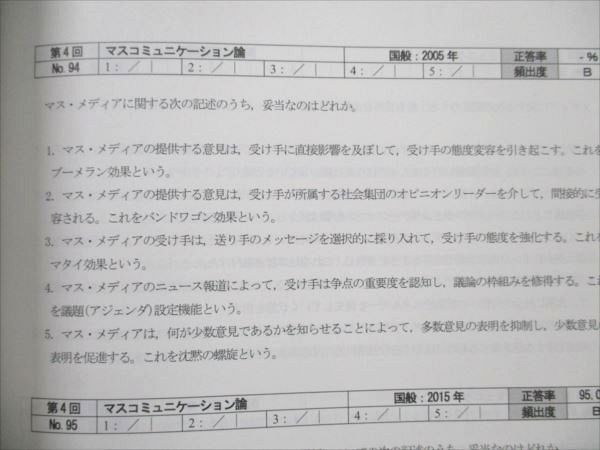 第4回 マスコミュニケーション論 国般：2005年 正答率 - %
No. 94 1：／ 2：／ 3：／ 4：／ 5：／ 頻出度 B
マス・メディアに関する次の記述のうち，妥当なのはどれか。
1. マス・メディアの提供する意見は，受け手に直接影響を及ぼして，受け手の態度変容を引き起こす。これを
ブーメラン効果という。
2. マス・メディアの提供する意見は，受け手が所属する社会集団のオピニオンリーダーを介して，間接的に受
容される。これをバンドワゴン効果という。
3. マス・メディアの受け手は，送り手のメッセージを選択的に採り入れて，受け手の態度を強化する。これを
マタイ効果という。
4. マス・メディアのニュース報道によって，受け手は争点の重要度を認知し，議論の枠組みを修得する。これ
を議題(アジェンダ)設定機能という。
5. マス・メディアは，何が少数意見であるかを知らせることによって，多数意見の表明を抑制し，少数意見の
表明を促進する。これを沈黙の螺旋という。
第4回 マスコミュニケーション論 国般：2015年 正答率 95.0
No. 95 1：／ 2：／ 3：／ 4：／ 5：／ 頻出度 B
の次の記述のうち，妥当なのはどれか。